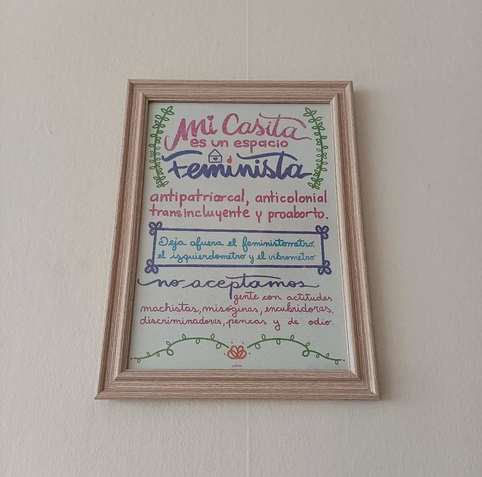 Mi Casita
es un espacio
Feminista
antipatriarcal, anticolonial
transincluyente y proaborto.
Deja afuera el feministometro,
el izquierdometro y el vibrometro
no aceptamos
gente con actitudes
machistas, misóginas, encubridoras,
discriminadoras, pencas y de odio.